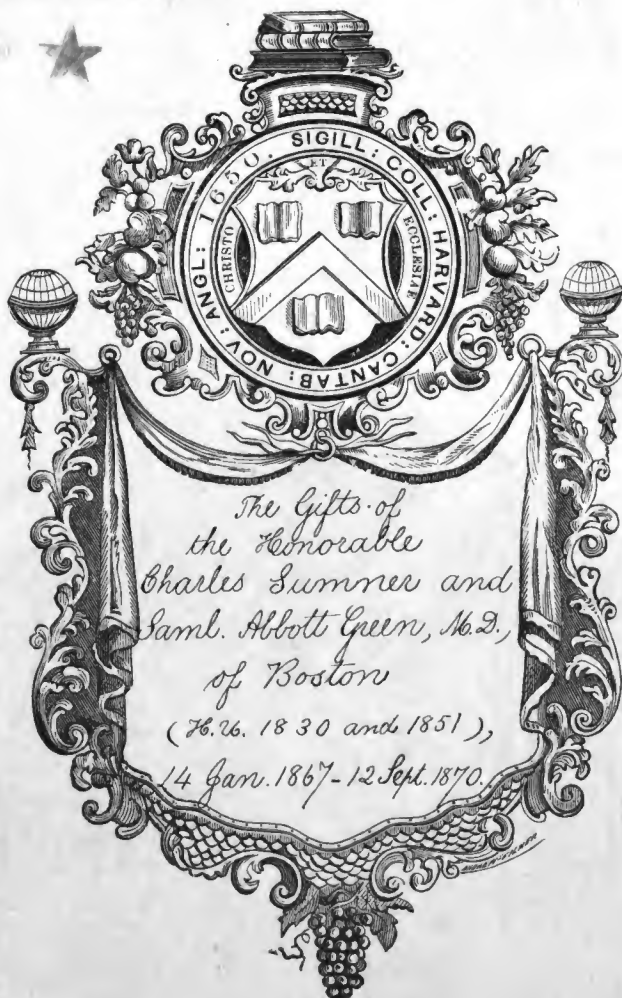 SIGILL: COLL: HARVARD: CANTAB: NOV: ANGL: 1650.
CHRISTO
ET
ECCLESIAE
The Gifts of
the Honorable
Charles Sumner and
Saml. Abbott Green, M.D.,
of Boston
(H.U. 1830 and 1851),
14 Jan. 1867-12 Sept. 1870.